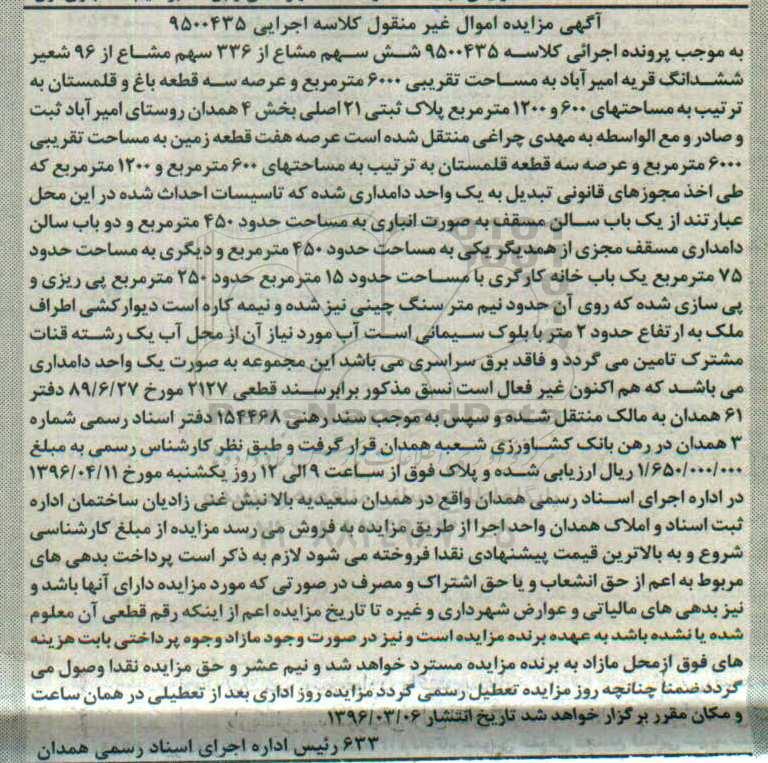 آگهی مزایده اموال غیر منقول کلاسه اجرایی ۹۵۰۰۴۳۵
به موجب پرونده اجرائی کلاسه ۹۵۰۰۴۳۵ شش سهم مشاع از ۳۳۶ سهم مشاع از ۹۶ شعیر
ششدانگ قریه امیر آباد به مساحت تقریبی ۶۰۰۰ مترمربع و عرصه سه قطعه باغ و قلمستان به
ترتیب به مساحتهای ۶۰۰ و ۱۲۰۰ مترمربع پلاک ثبتی ۲۱ اصلی بخش ۴ همدان روستای امیر آباد ثبت
و صادر و مع الواسطه به مهدی چراغی منتقل شده است عرصه هفت قطعه زمین به مساحت تقریبی
۶۰۰۰ مترمربع و عرصه سه قطعه قلمستان به ترتیب به مساحتهای ۶۰۰ مترمربع و ۱۲۰۰ مترمربع که
طی اخذ مجوزهای قانونی تبدیل به یک واحد دامداری شده که تاسیسات احداث شده در این محل
عبارتند از یک باب سالن مسقف به صورت انباری به مساحت حدود ۴۵۰ مترمربع و دو باب سالن
دامداری مسقف مجزی از همدیگر یکی به مساحت حدود ۴۵۰ مترمربع و دیگری به مساحت حدود
۷۵ مترمربع یک باب خانه کارگری با مساحت حدود ۱۵ مترمربع حدود ۲۵۰ مترمربع پی ریزی و
پی سازی شده که روی آن حدود نیم متر سنگ چینی نیز شده و نیمه کاره است دیوارکشی اطراف
ملک به ارتفاع حدود ۲ متر با بلوک سیمانی است آب مورد نیاز آن از محل آب یک رشته قنات
مشترک تامین می گردد و فاقد برق سراسری می باشد این مجموعه به صورت یک واحد دامداری
می باشد که هم اکنون غیر فعال است نسق مذکور برابر سند قطعی ۲۱۲۷ مورخ ۸۹/۶/۲۷ دفتر
۶۱ همدان به مالک منتقل شده و سپس به موجب سند رهنی ۱۵۴۴۶۸ دفتر اسناد رسمی شماره
۳ همدان در رهن بانک کشاورزی شعبه همدان قرار گرفت و طبق نظر کارشناس رسمی به مبلغ
۱/۶۵۰/۰۰۰/۰۰۰ ریال ارزیابی شده و پلاک فوق از ساعت ۹ الی ۱۲ روز یکشنبه مورخ ۱۳۹۶/۰۴/۱۱
در اداره اجرای اسناد رسمی همدان واقع در همدان سعیدیه بالا نبش غنی زادیان ساختمان اداره
ثبت اسناد و املاک همدان واحد اجرا از طریق مزایده به فروش می رسد مزایده از مبلغ کارشناسی
شروع و به بالاترین قیمت پیشنهادی نقدا فروخته می شود لازم به ذکر است پرداخت بدهی های
مربوط به اعم از حق انشعاب و یا حق اشتراک و مصرف در صورتی که مورد مزایده دارای آنها باشد و
نیز بدهی های مالیاتی و عوارض شهرداری و غیره تا تاریخ مزایده اعم از اینکه رقم قطعی آن معلوم
شده یا نشده باشد به عهده برنده مزایده است و نیز در صورت وجود مازاد وجوه پرداختی بابت هزینه
های فوق ازمحل مازاد به برنده مزایده مسترد خواهد شد و نیم عشر و حق مزایده نقدا وصول می
گردد ضمنا چنانچه روز مزایده تعطیل رسمی گردد مزایده روز اداری بعد از تعطیلی در همان ساعت
و مکان مقرر برگزار خواهد شد تاریخ انتشار ۱۳۹۶/۰۳/۰۶
۶۳۳ رئیس اداره اجرای اسناد رسمی همدان